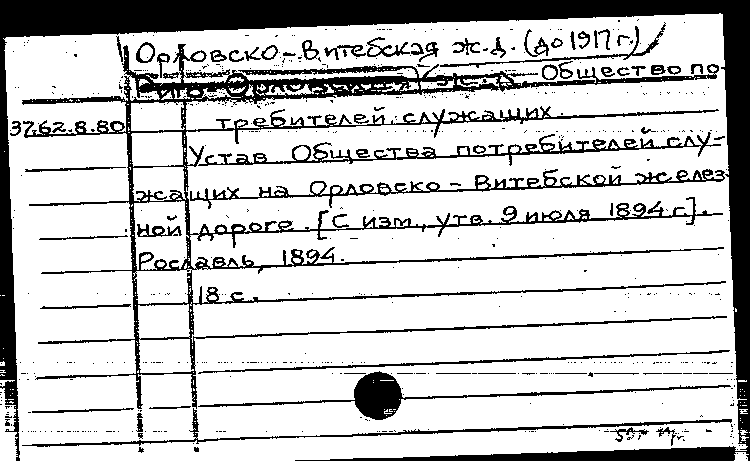 Орловско-Витебская ж.д. (до 1917 г.)
Риго-Орловская ж.д. Общество по-
37.62.8.80 требителей служащих.
Устав Общества потребителей слу-
жащих на Орловско-Витебской желез-
ной дороге. [С изм., утв. 9 июля 1894 г.].
Рославль, 1894.
18 с.